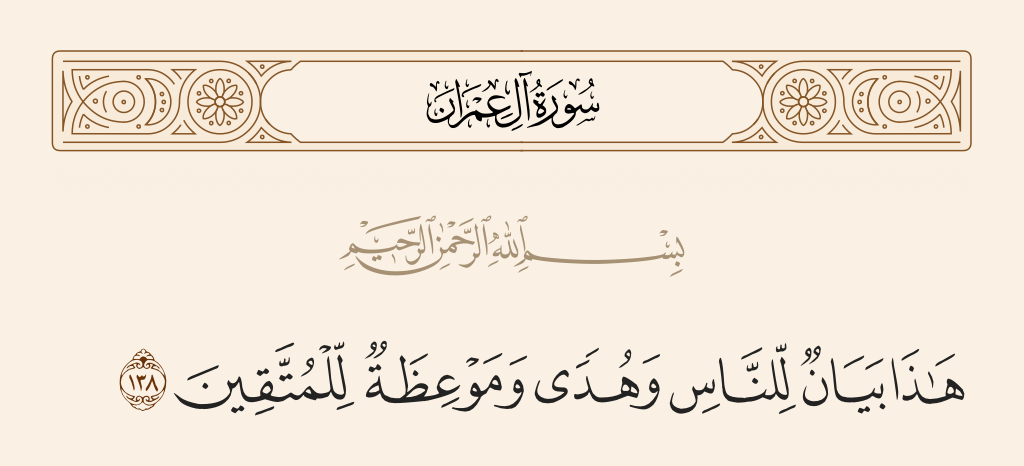 سُورَةُ آلِ عِمْرَان
بِسْمِ ٱللَّهِ ٱلرَّحْمَٰنِ ٱلرَّحِيمِ
هَٰذَا بَيَانٌ لِّلنَّاسِ وَهُدًى وَمَوْعِظَةٌ لِّلْمُتَّقِينَ ١٣٨